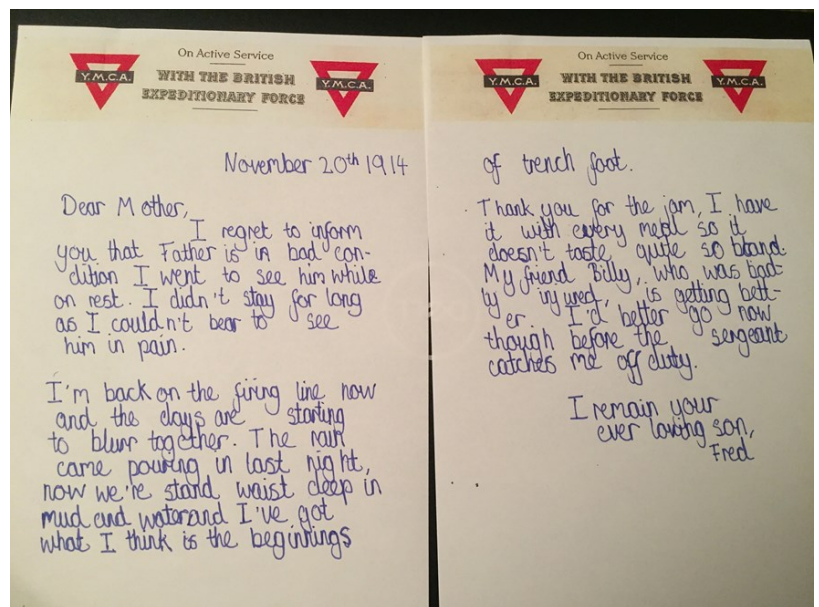 On Active Service
Y.M.C.A.
WITH THE BRITISH
Y.M.C.A.
EXPEDITIONARY FORCE
November 20th 1914
Dear Mother,
I regret to inform
you that Father is in bad con-
dition I went to see him while
on rest. I didn't stay for long
as I couldn't bear to see
him in pain.
I'm back on the firing line now
and the days are starting
to blurr together. The rain
came pouring in last night,
now we're stand waist deep in
mud and water and I've got
what I think is the beginnings
On Active Service
Y.M.C.A.
WITH THE BRITISH
Y.M.C.A.
EXPEDITIONARY FORCE
of trench foot.
Thank you for the jam, I have
it with every meal so it
doesn't taste quite so bland.
My friend Billy, who was bad-
ly injured, is getting bett-
er. I'd better go now
though before the sergeant
catches me off duty.
I remain your
ever loving son,
Fred